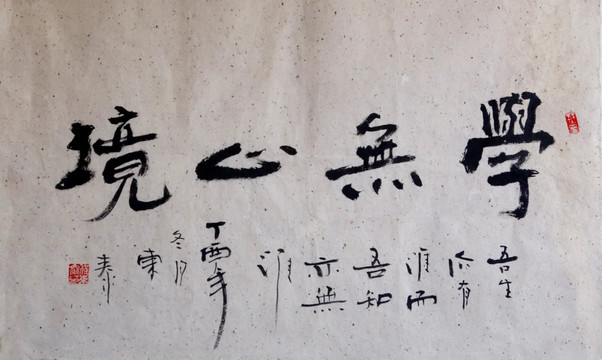 學無心境
吾生
有
涯而
吾知
亦無
涯
丁酉年
冬月
東